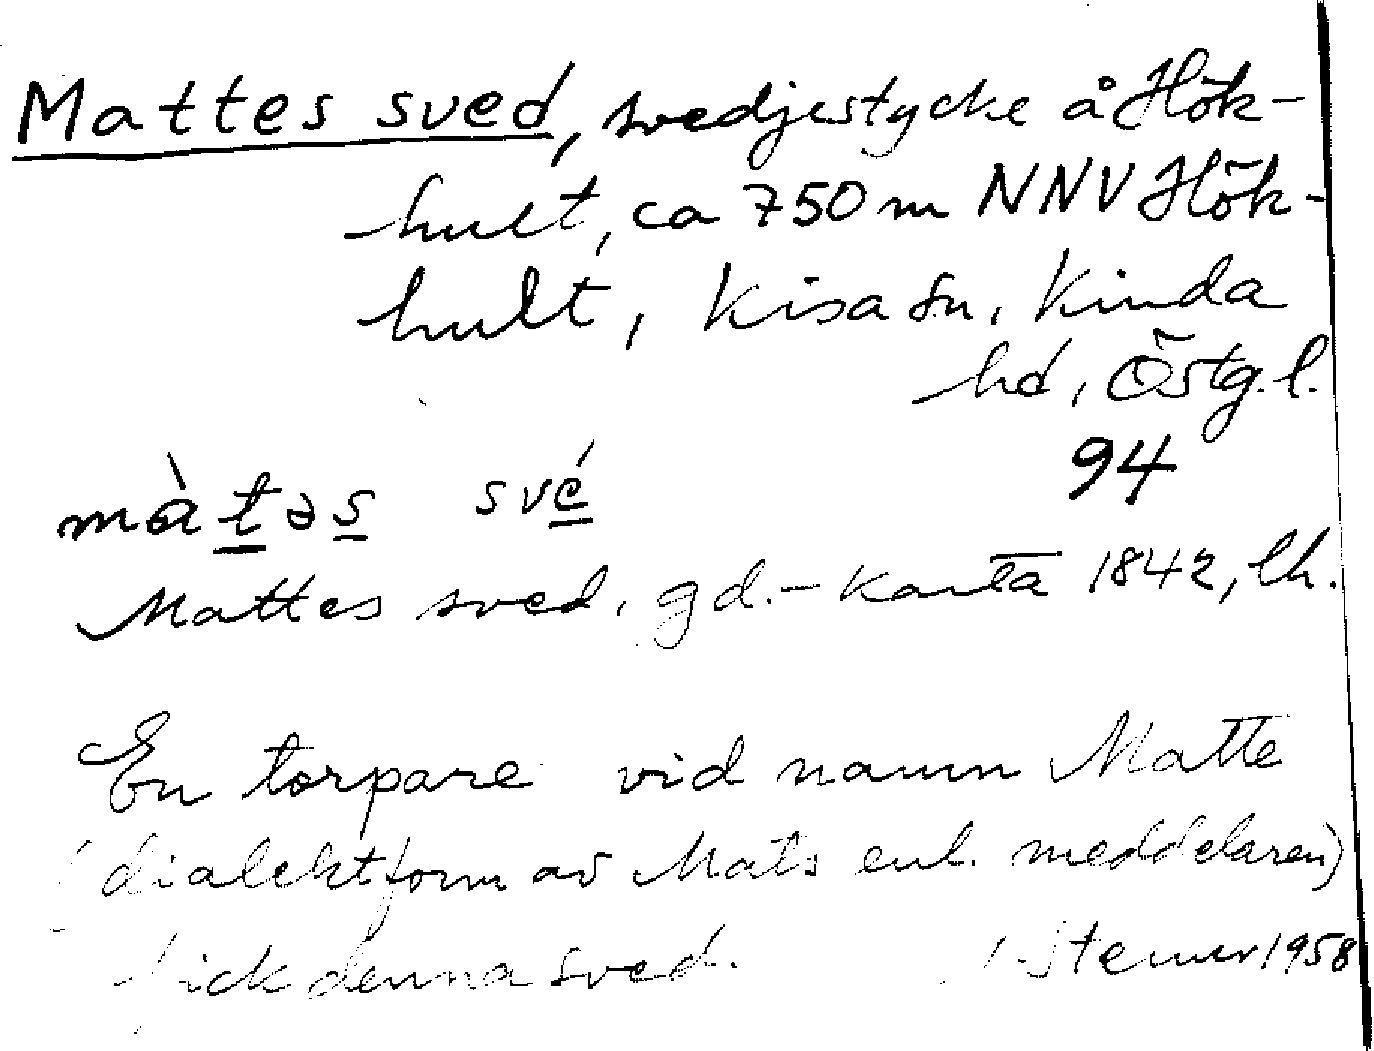 Mattes sved, svedjestycke å Hök-
hult, ca 750 m NNV Hök-
hult, Kisa sn, Kinda
hd, Östg. l.
94
màtəs své
Mattes sved, gd.-karta 1842, lh.
En torpare vid namn Matte
(dialektform av Mats enl. meddelaren)
fick denna sved. 1958